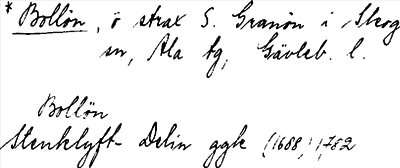 * Bollön, ö strax S. Granön i Skog
sn, Ala tg, Gävleb. l.
Bollön
Stenklyft- Delin ggk (1688) 1782